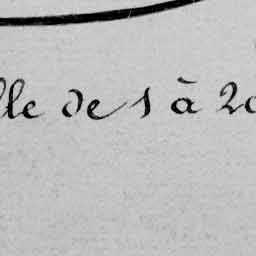 lle de 1 à 20